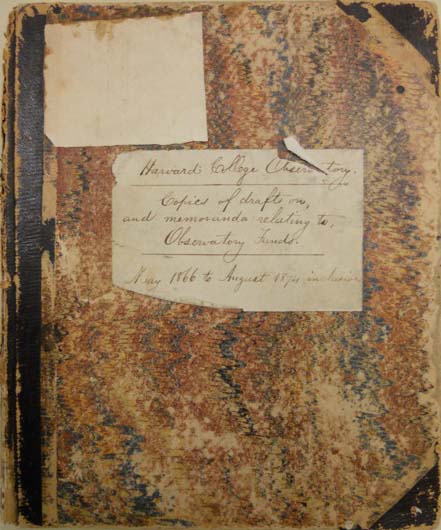 Harvard College Observatory.
Copies of drafts on,
and memoranda relating to,
Observatory Funds.
May 1866 to August 1874 inclusive